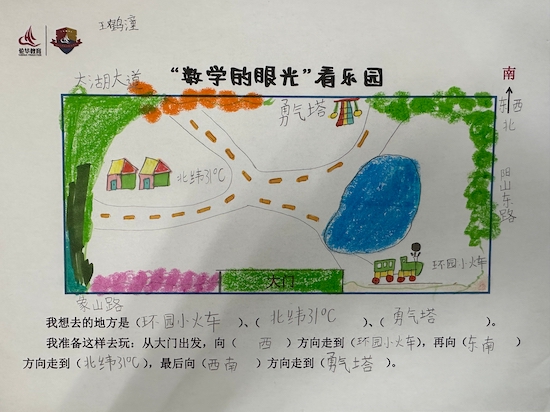 王鹤潼
愉华教育
太湖大道
“数学的眼光”看乐园
南
东 西
北
勇气塔
北纬31°C
阳山东路
环园小火车
大门
象山路
我想去的地方是(环园小火车)、(北纬31°C)、(勇气塔)。
我准备这样去玩:从大门出发,向(西)方向走到(环园小火车),再向(东南)
方向走到(北纬31°C),最后向(西南)方向走到(勇气塔)。